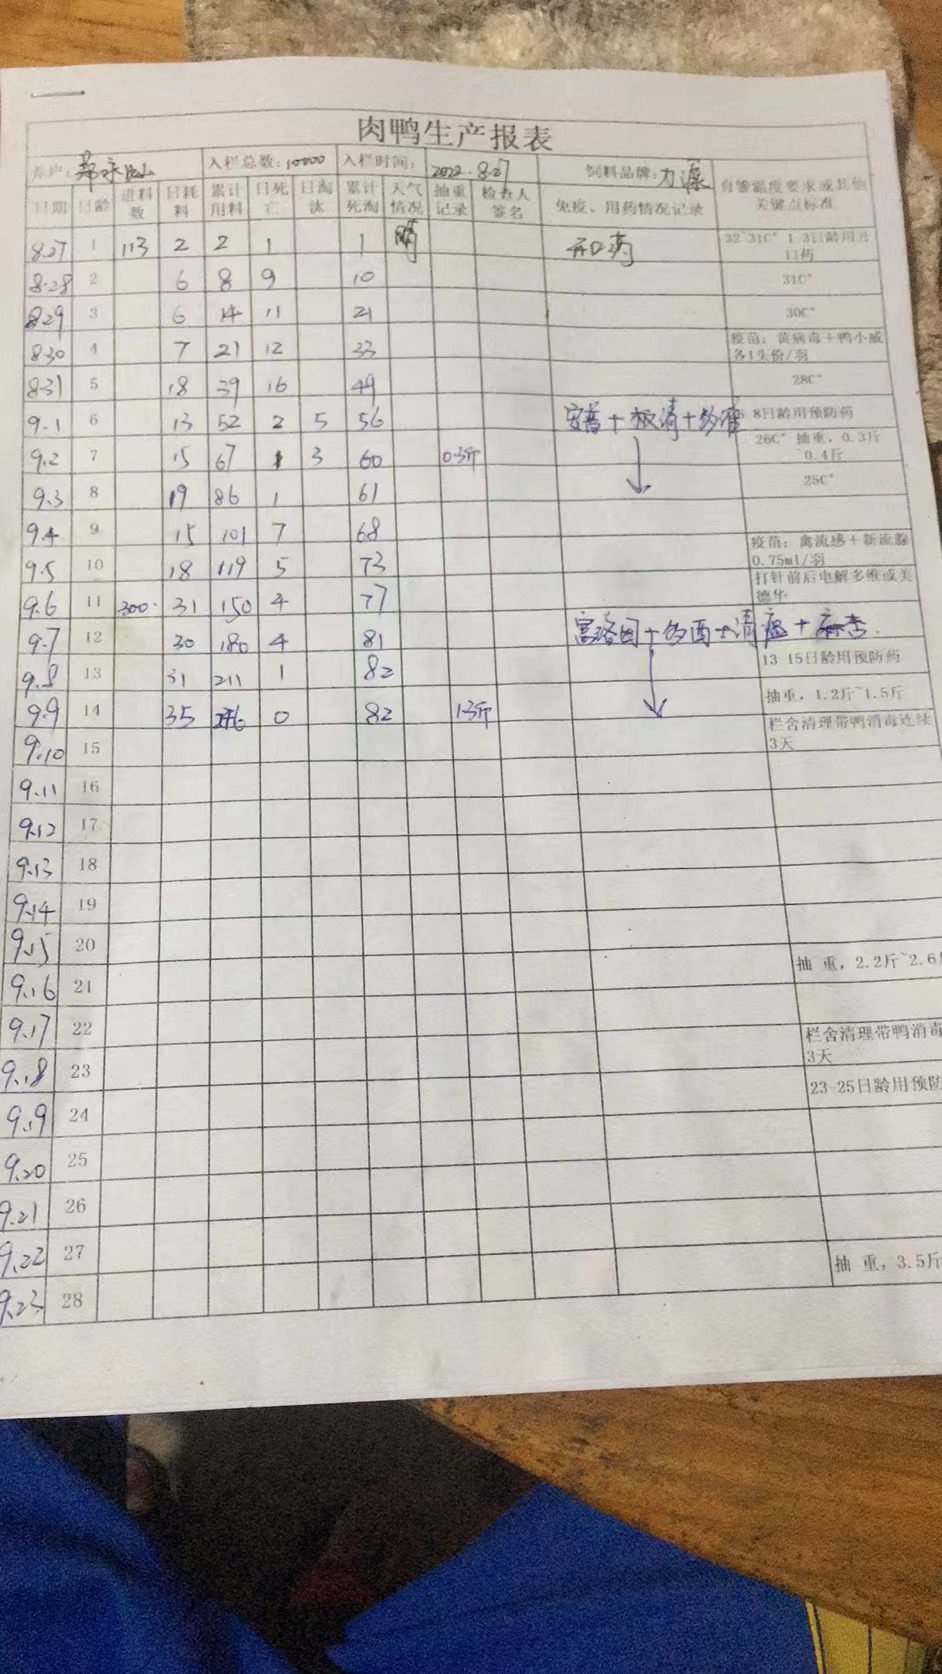 肉鸭生产报表
养户: 入栏总数:10000 入栏时间: 2022.8.27 饲料品牌:力源 育雏温度要求或其他关键点标准
日期 日龄 进料数 日耗料 累计用料 日死亡 日淘汰 累计死淘 天气情况 抽重记录 检查人签名 免疫、用药情况记录
8.27 1 113 2 2 1 1 晴 开口药 32-31C° 1-3日龄用开口药
8.28 2 6 8 9 10 31C°
8.29 3 6 14 11 21 30C°
8.30 4 7 21 12 33 疫苗：黄病毒+鸭小威各1头份/羽
8.31 5 18 39 16 49 28C°
9.1 6 13 52 2 5 56 +板清+ 8日龄用预防药
9.2 7 15 67 1 3 60 0.3斤 26C° 抽重，0.3斤 0.4斤
9.3 8 19 86 1 61 25C°
9.4 9 15 101 7 68
9.5 10 18 119 5 73 疫苗：禽流感+新流腺0.75ml/羽
9.6 11 300 31 150 4 77 打针前后电解多维或美德华
9.7 12 30 180 4 81 +清瘟+麻杏
9.8 13 31 211 1 82 13-15日龄用预防药
9.9 14 35 246 0 82 1.3斤 抽重，1.2斤~1.5斤
9.10 15 栏舍清理带鸭消毒连续3天
9.11 16
9.12 17
9.13 18
9.14 19
9.15 20 抽 重，2.2斤~2.6
9.16 21
9.17 22 栏舍清理带鸭消毒
3天
9.18 23 23-25日龄用预防
9.19 24
9.20 25
9.21 26
9.22 27 抽 重，3.5斤
9.23 28